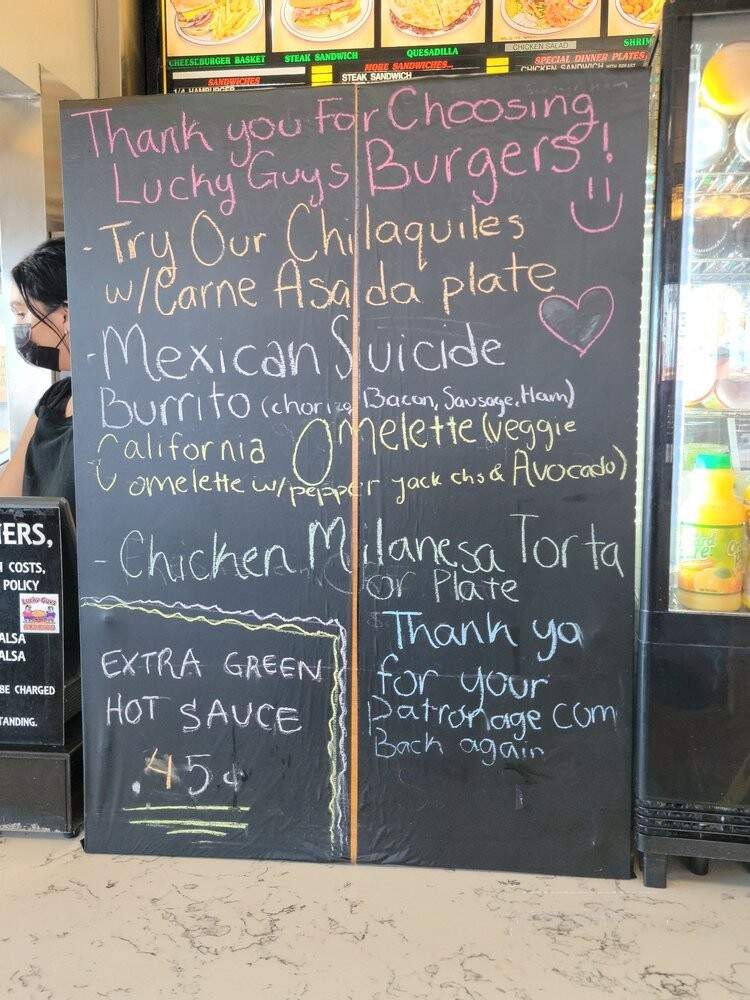 CHEESEBURGER BASKET
STEAK SANDWICH
QUESADILLA
CHICKEN SALAD
SHRIM
SANDWICHES
MORE SANDWICHES...
SPECIAL DINNER PLATES
1/4 HAMBURGER
STEAK SANDWICH
CHICKEN SANDWICH
Thank you For Choosing
Lucky Guys Burgers!
- Try Our Chilaquiles
w/Carne Asada plate
- Mexican Suicide
Burrito (chorizo Bacon, Sausage, Ham)
California Omelette (veggie
omelette w/pepper jack chs & Avocado)
- Chicken Milanesa Torta
or Plate
EXTRA GREEN
HOT SAUCE
.45¢
Thank ya
for your
Patronage com
Back again
ERS,
COSTS,
POLICY
Lucky Guys
ALSA
ALSA
BE CHARGED
TANDING.